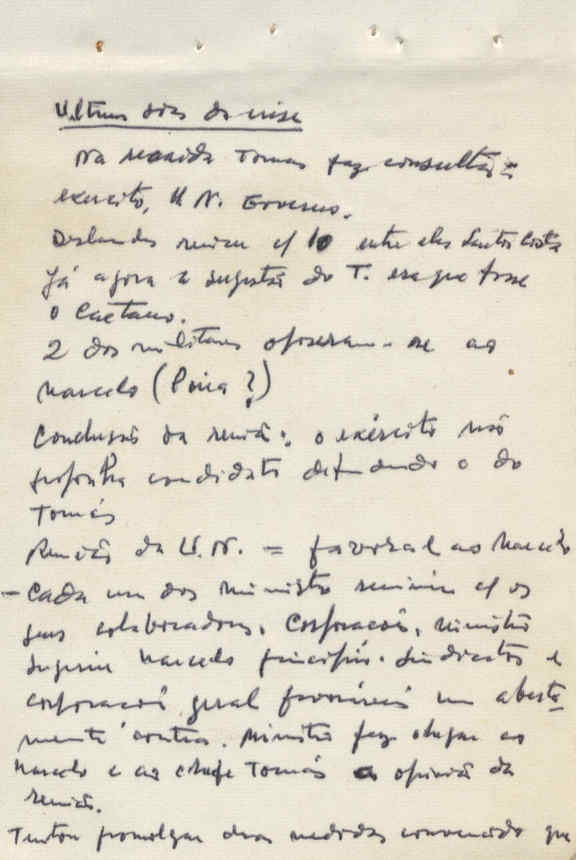 Ultimos dias da crise
Na reunida Tomas fez consultas =
exercito, U N. Governo.
Deslandes reuniu c/ 10 entre eles Santos Costa
Já agora a sugestão do T. era que fosse
o Caetano.
2 dos militares opuseram-se ao
Marcelo ( ?)
Conclusão da reunião: o exército não
propunha candidato defendendo o do
Tomás
Reunião da U.N. = favoravel ao Marcelo
- Cada um dos ministros reuniu c/ os
seus colaboradores. Corporações, ministro
sugeriu Marcelo principio. Sindicatos e
corporações geral favoráveis um aberta-
mente contra. Ministro fez chegar ao
Marcelo e ao chefe Tomás a opinião da
reunião.
Tentou promulgar duas medidas convencido que